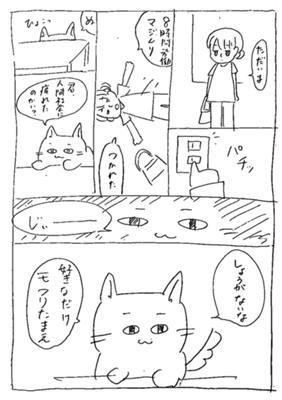 ただいま
パチッ
8時間労働
マジムリ
つかれた
ぬ
君、
人間社会に
疲れた
のかい？
じぃー
しょうがないな
好きなだけ
モフりたまえ